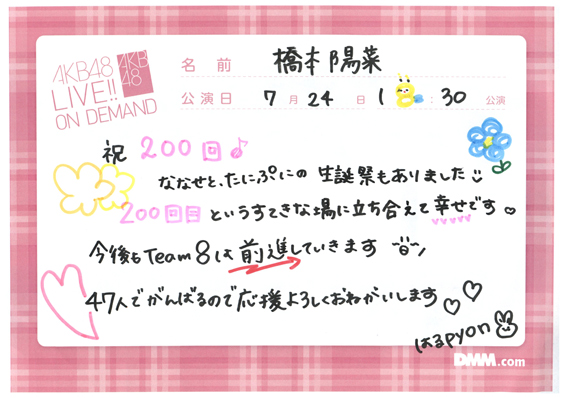 AKB48
LIVE!!
ON DEMAND
AKB
48
名前 橋本陽菜
公演日 7月24日 1 : 30 公演
祝 200回♪
ななせと、たにぷにの 生誕祭もありました
200回目というすてきな場に立ち合えて幸せです♡
今後もTeam 8は前進していきます
47人でがんばるので応援よろしくおねがいします♡♡
はるpyon
DMM.com